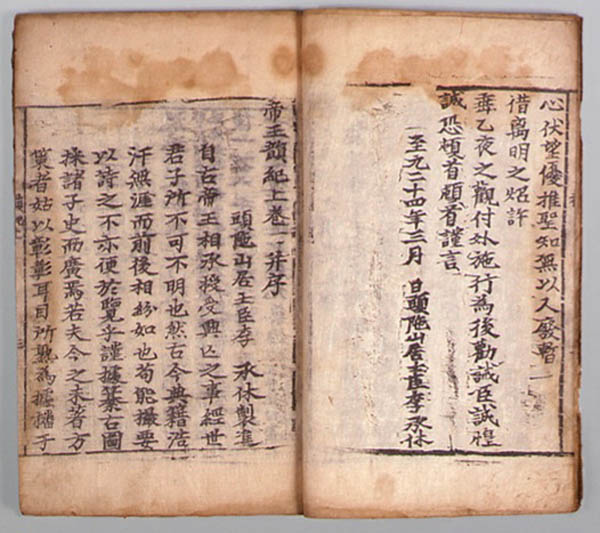 心伏望優推聖知無以人癈暫一
借离明之炤許
垂乙夜之觀付外施行為後勸誡臣誠惶
誠恐頓首頓首謹言
至元二十四年三月 日頭陁山居士臣李承休
帝王韻紀上卷 并序
頭陁山居士臣李 承休製進
自古帝王相承授受興亡之事經世
君子所不可不明也然古今典籍浩
汗無涯而前後相紛如也苟能撮要
以詩之不亦便於覽乎謹據纂古圖
採諸子史而廣焉若夫今之未著方
策者姑以彰彰耳目所熟為據播于